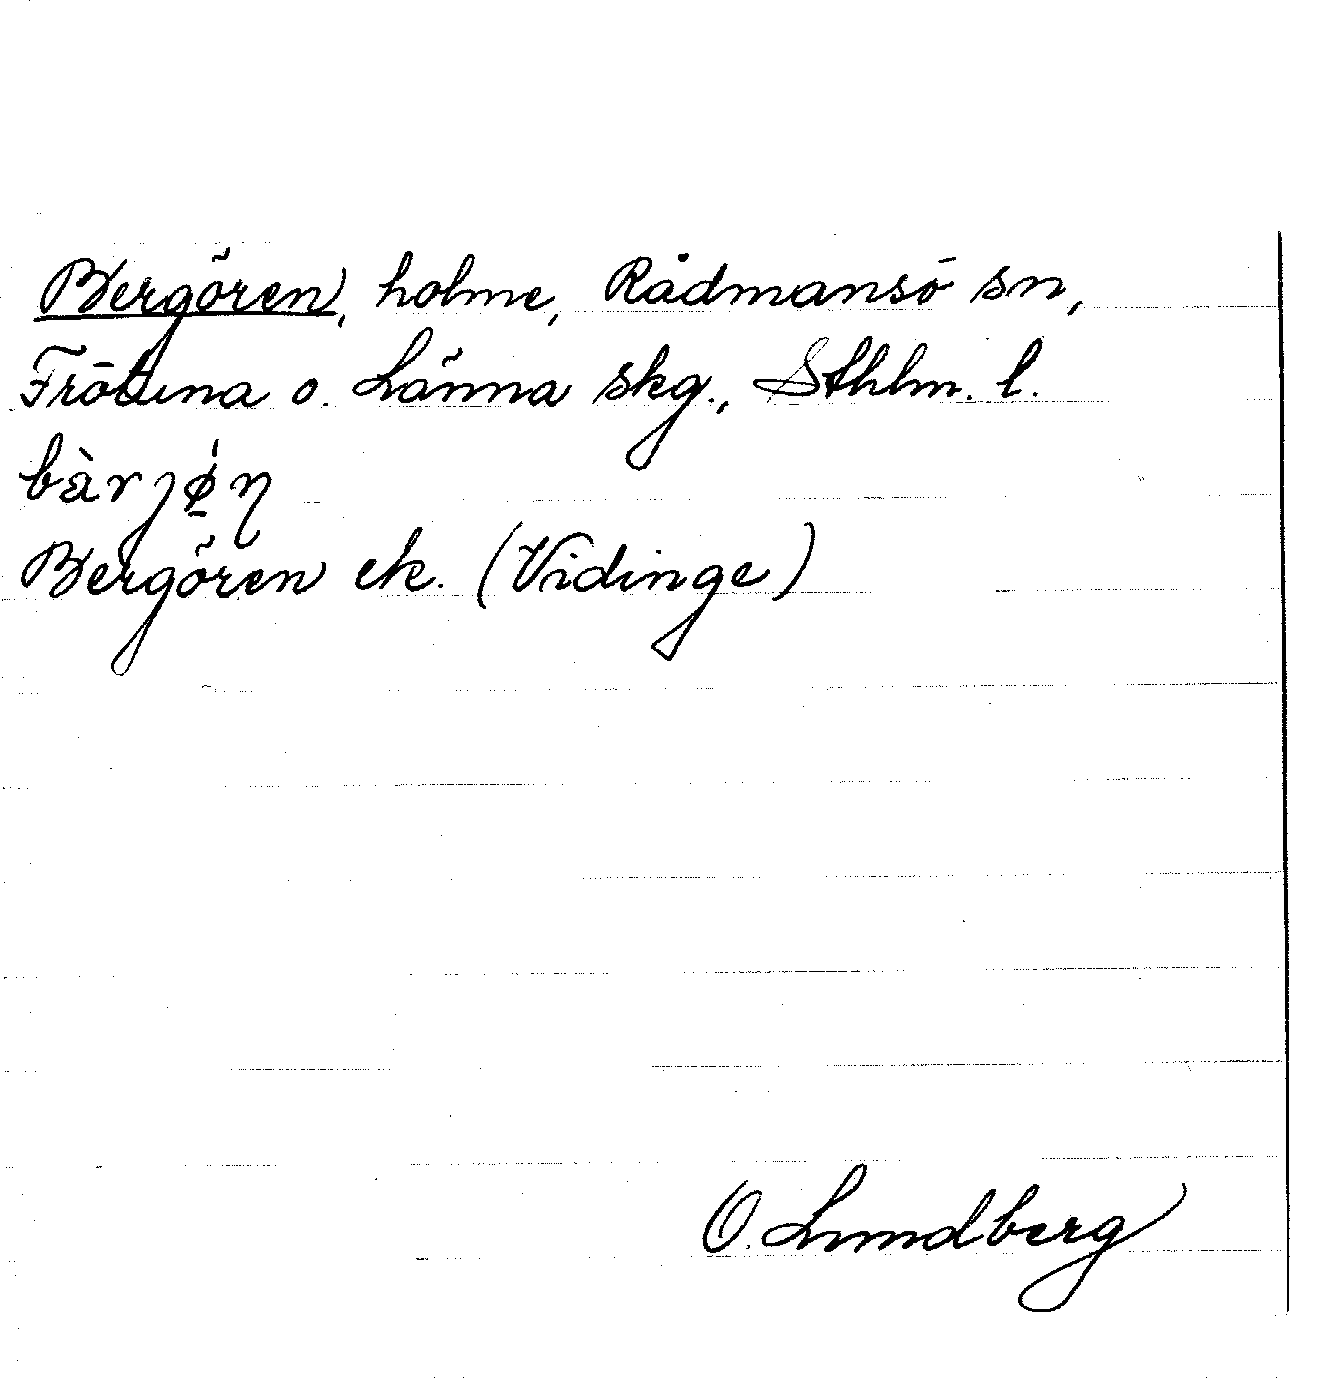 Bergören, holme, Rådmansö sn,
Frötuna o. Länna skg., Sthlm. l.
bàrjǿ̱η
Bergören ek. (Vidinge)
O. Lundberg